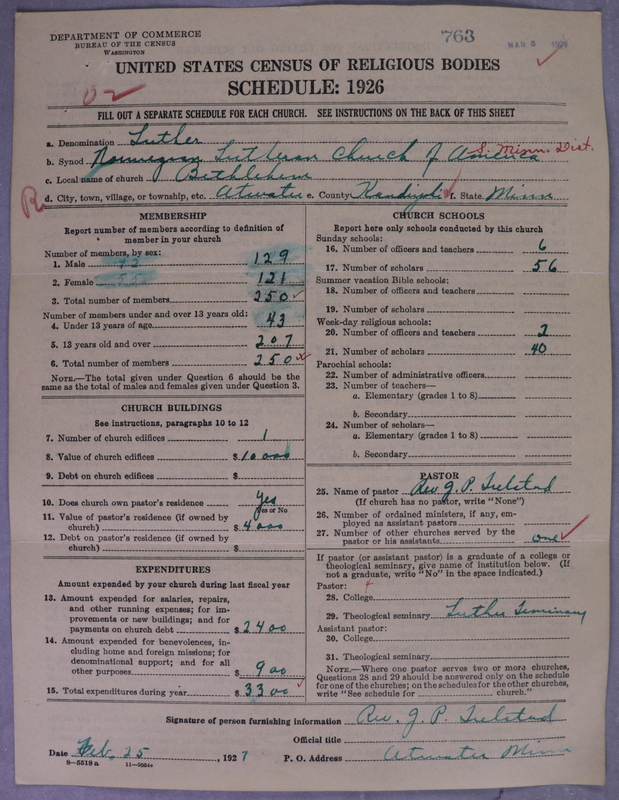 DEPARTMENT OF COMMERCE
BUREAU OF THE CENSUS
WASHINGTON
763
MAR 5 1927
UNITED STATES CENSUS OF RELIGIOUS BODIES
SCHEDULE: 1926
02
FILL OUT A SEPARATE SCHEDULE FOR EACH CHURCH. SEE INSTRUCTIONS ON THE BACK OF THIS SHEET
a. Denomination Luther
b. Synod Norwegian Lutheran Church of America S. Minn. Dist.
c. Local name of church Bethlehem
R d. City, town, village, or township, etc. Atwater e. County Kandiyohi f. State Minn
MEMBERSHIP
Report number of members according to definition of
member in your church
Number of members, by sex:
1. Male 129
2. Female 121
3. Total number of members 250
Number of members under and over 13 years old:
4. Under 13 years of age 43
5. 13 years old and over 207
6. Total number of members 250
NOTE.—The total given under Question 6 should be the
same as the total of males and females given under Question 3.
CHURCH BUILDINGS
See instructions, paragraphs 10 to 12
7. Number of church edifices 1
8. Value of church edifices $10000
9. Debt on church edifices $
10. Does church own pastor's residence Yes
Yes or No
11. Value of pastor's residence (if owned by
church) $4000
12. Debt on pastor's residence (if owned by
church) $
EXPENDITURES
Amount expended by your church during last fiscal year
13. Amount expended for salaries, repairs,
and other running expenses; for im-
provements or new buildings; and for
payments on church debt $2400
14. Amount expended for benevolences, in-
cluding home and foreign missions; for
denominational support; and for all
other purposes $900
15. Total expenditures during year $3300
CHURCH SCHOOLS
Report here only schools conducted by this church
Sunday schools:
16. Number of officers and teachers 6
17. Number of scholars 56
Summer vacation Bible schools:
18. Number of officers and teachers
19. Number of scholars
Week-day religious schools:
20. Number of officers and teachers 2
21. Number of scholars 40
Parochial schools:
22. Number of administrative officers
23. Number of teachers—
a. Elementary (grades 1 to 8)
b. Secondary
24. Number of scholars—
a. Elementary (grades 1 to 8)
b. Secondary
PASTOR
25. Name of pastor Rev. J. P. Tulstad
(If church has no pastor, write "None")
26. Number of ordained ministers, if any, em-
ployed as assistant pastors
27. Number of other churches served by the
pastor or his assistants one
If pastor (or assistant pastor) is a graduate of a college or
theological seminary, give name of institution below. (If
not a graduate, write "No" in the space indicated.)
Pastor:
28. College
29. Theological seminary Luther Seminary
Assistant pastor:
30. College
31. Theological seminary
NOTE.—Where one pastor serves two or more churches,
Questions 28 and 29 should be answered only on the schedule
for one of the churches; on the schedules for the other churches,
write "See schedule for church."
Signature of person furnishing information Rev. J. P. Tulstad
Official title
Date Feb. 25, 1927 P. O. Address Atwater Minn
8—5518a 11—9054